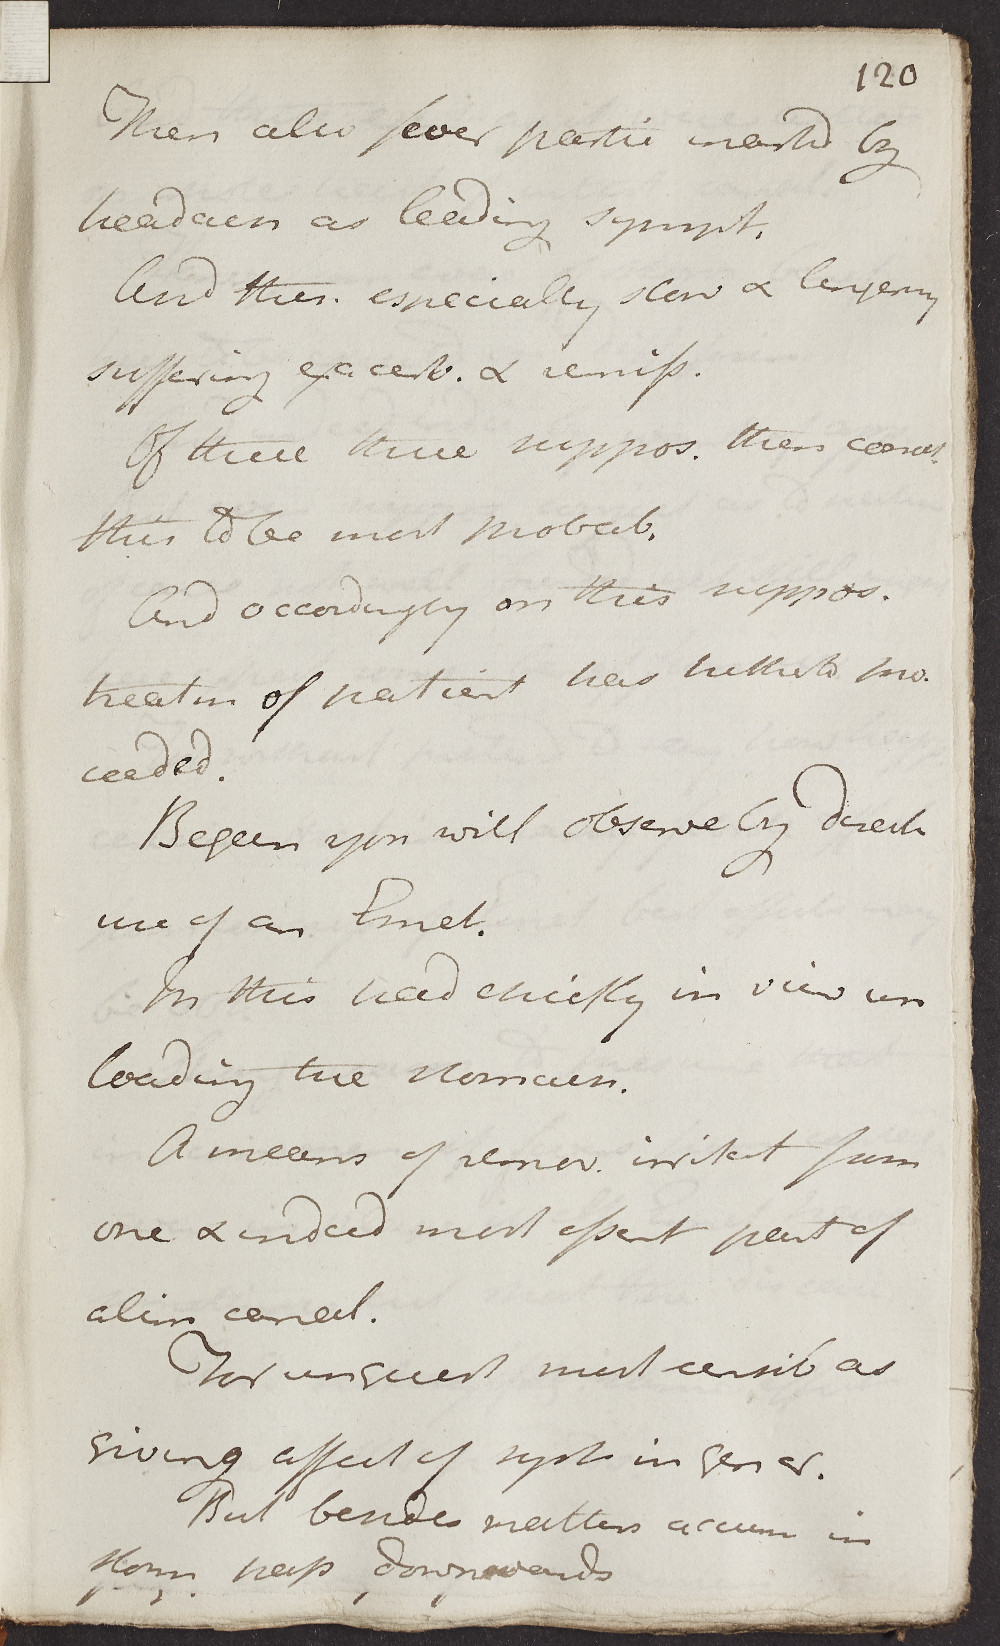 120
Then also fever partic markd by
headach as leading sympt.
And this. especially slow & lingering
suffering exacerb. & remiss.
Of these three suppos. then consid.
this to be most probab.
And accordingly on this suppos.
treatm of patient has hitherto pro.
ceeded.
Begun you will observe by direct
use of an Emet.
In this had chiefly in view un
loading the stomach.
A means of remov. irritat from
one & indeed most essent part of
alim canal.
For unquest most sensib as
giving affect of syst in gener.
But besides matters accum in
stom. pass downwards